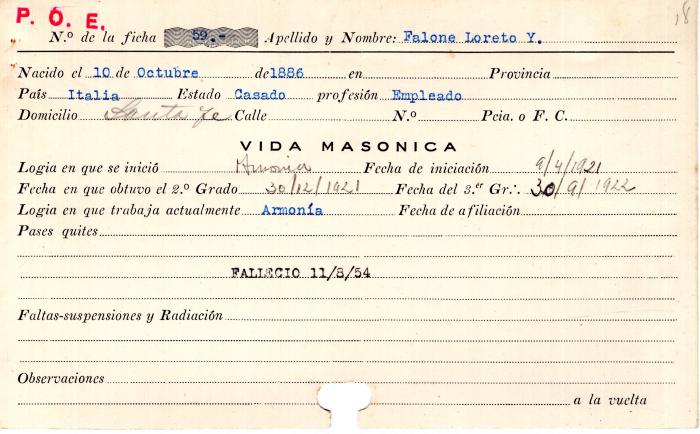 P. O. E.
18
N.º de la ficha 59.- Apellido y Nombre: Falone Loreto Y.
Nacido el 10 de Octubre de 1886 en Provincia
País Italia Estado Casado profesión Empleado
Domicilio Santa Fe Calle N.º Pcia. o F. C.
VIDA MASONICA
Logia en que se inició Armonia Fecha de iniciación 9/4/1921
Fecha en que obtuvo el 2.º Grado 30/12/1921 Fecha del 3.er Gr∴ 30/9/1922
Logia en que trabaja actualmente Armonía Fecha de afiliación
Pases quites
FALLECIO 11/8/54
Faltas-suspensiones y Radiación
Observaciones
a la vuelta